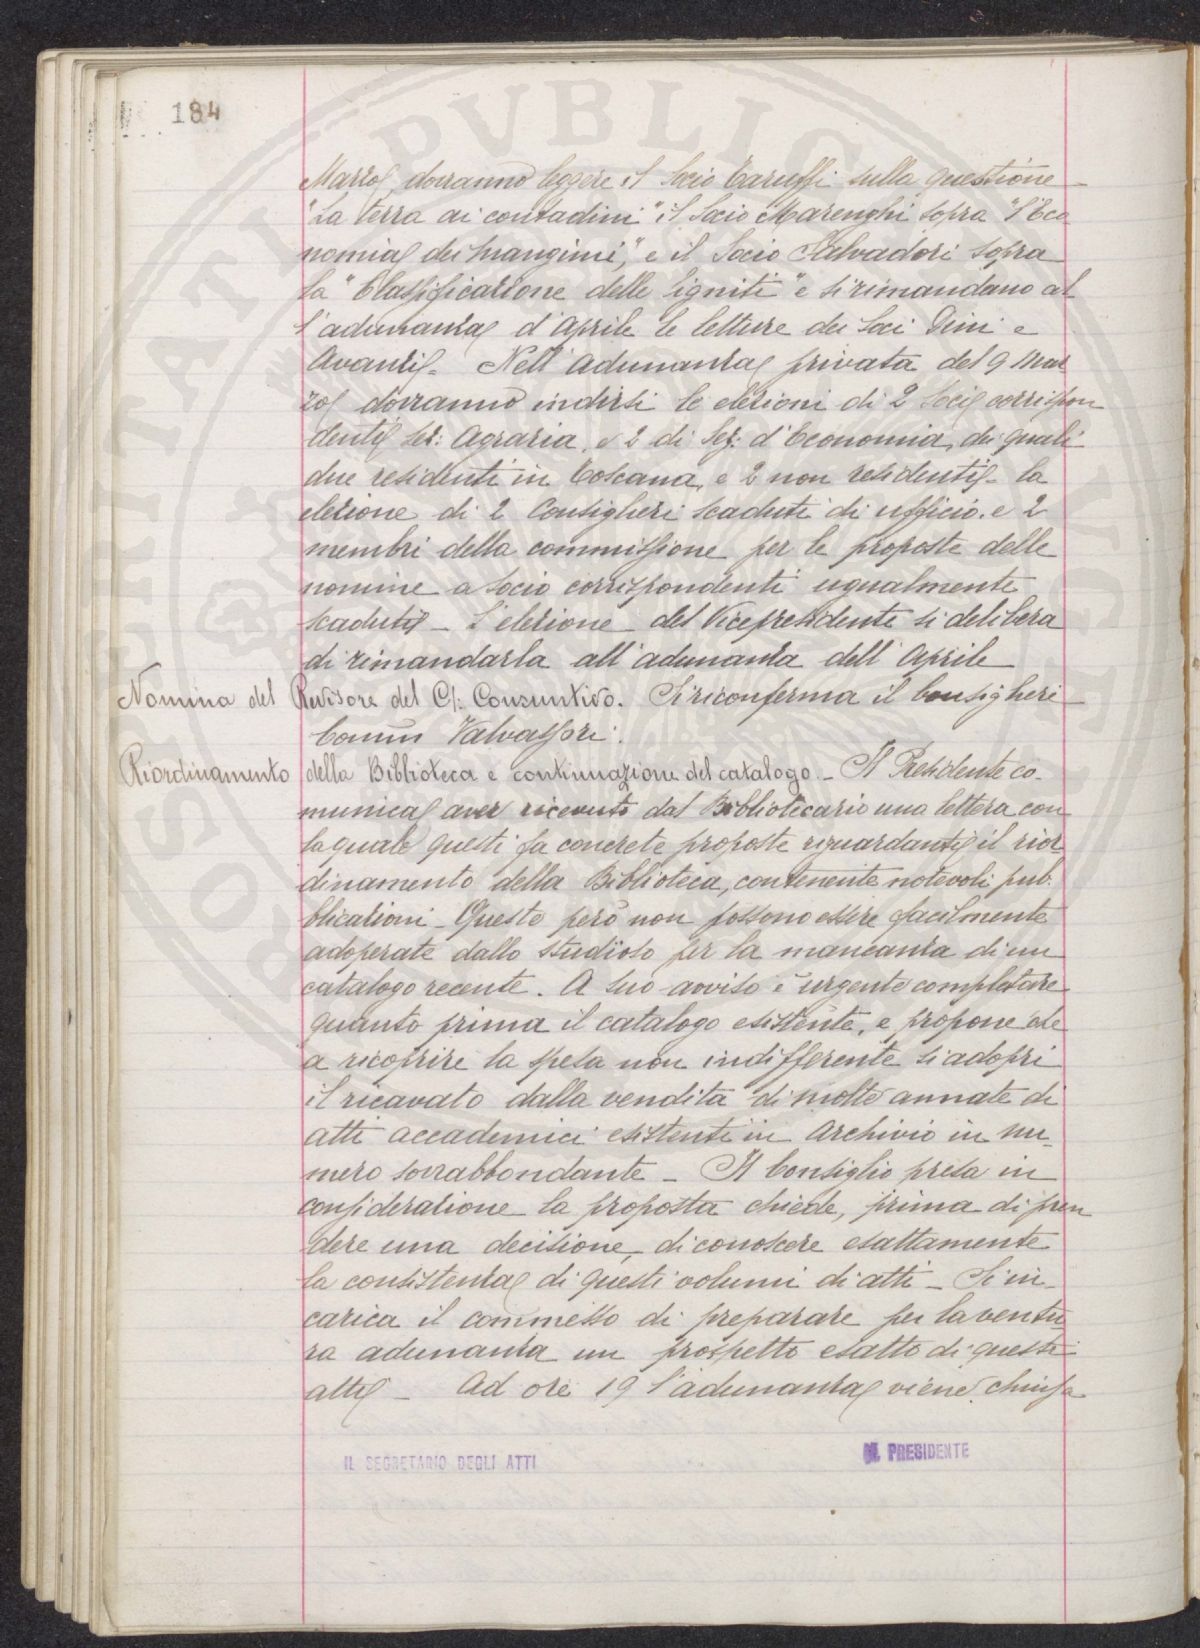 184
Marzo, dovranno leggere il Socio Taruffi sulla questione
"La terra ai contadini" il Socio Marenghi sopra "l'Eco
nomia dei Mangimi", e il Socio Salvadori sopra
la "Classificazione delle Ligniti" e si rimandano al
l'adunanza d'Aprile le letture dei Soci Dini e
Avanti. Nell'adunanza privata del 9 Mar
zo dovranno indirsi le elezioni di 2 Soci corrispon
denti Sez: Agraria, e 2 di Sez: d'Economia, dei quali
due residenti in Toscana, e 2 non residenti. la
elezione di 2 Consiglieri scaduti di ufficio. e 2
membri della commissione per le proposte delle
nomine a socio corrispondenti ugualmente
scaduti _ L'elezione del Vicepresidente si delibera
di rimandarla all'adunanza dell'Aprile
Nomina del Revisore del C/: Consuntivo. Si riconferma il Consigliere
Comm Valvassori.
Riordinamento della Biblioteca e continuazione del catalogo. _ Il Presidente co-
munica aver ricevuto dal Bibliotecario una lettera con
la quale questi fa concrete proposte riguardanti il rior
dinamento della Biblioteca, contenente notevoli pub
blicazioni _ Queste però non possono essere facilmente
adoperate dallo studioso per la mancanza di un
catalogo recente. A suo avviso è urgente completare
quanto prima il catalogo esistente, e propone che
a ricoprire la spesa non indifferente si adopri
il ricavato dalla vendita di molte annate di
atti accademici esistenti in Archivio in nu-
mero sovrabbondante _ Il Consiglio presa in
considerazione la proposta chiede, prima di pren
dere una decisione, di conoscere esattamente
la consistenza di questi volumi di atti _ Si in-
carica il commesso di preparare per la ventu-
ra adunanza un prospetto esatto di questi
atti _ Ad ore 19 l'adunanza viene chiusa
IL SEGRETARIO DEGLI ATTI
IL PRESIDENTE